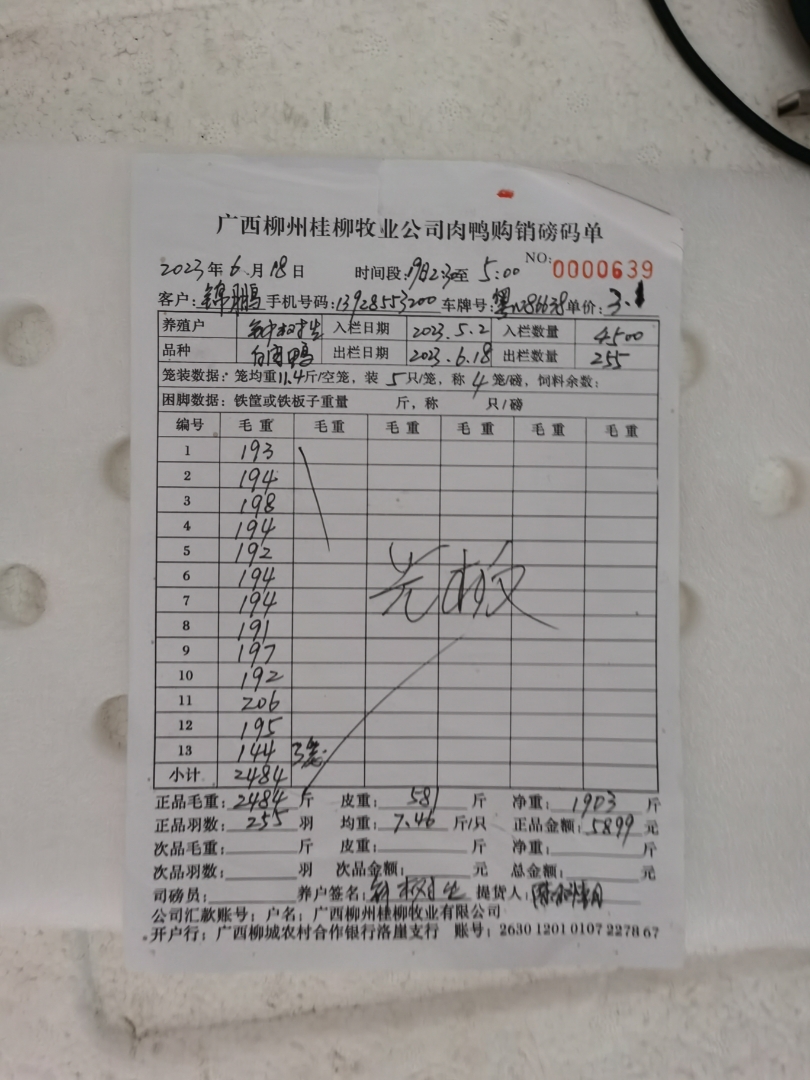 广西柳州桂柳牧业公司肉鸭购销磅码单
2023年6月18日 时间段: 至5:00 NO:0000639
客户:锦鹏 手机号码:13928553200 车牌号: 单价:3.1
养殖户 入栏日期 2023.5.2 入栏数量 4500
品种 白肉鸭 出栏日期 2023.6.18 出栏数量 255
笼装数据:笼均重11.4斤/空笼,装5只/笼,称4笼/磅,饲料余数:
困脚数据:铁筐或铁板子重量 斤,称 只/磅
编号 毛重 毛重 毛重 毛重 毛重 毛重
1 193
2 194
3 198
4 194
5 192
6 194
7 194
8 191
9 197
10 192
11 206
12 195
13 144 3笼
小计 2484
正品毛重:2484斤 皮重:581斤 净重:1903斤
正品羽数:255羽 均重:7.46斤/只 正品金额:5899元
次品毛重: 斤 皮重: 斤 净重: 斤
次品羽数: 羽 次品金额: 元 总金额: 元
司磅员: 养户签名: 提货人:
公司汇款账号:户名:广西柳州桂柳牧业有限公司
开户行:广西柳城农村合作银行洛崖支行 账号:2630 1201 0107 2278 67